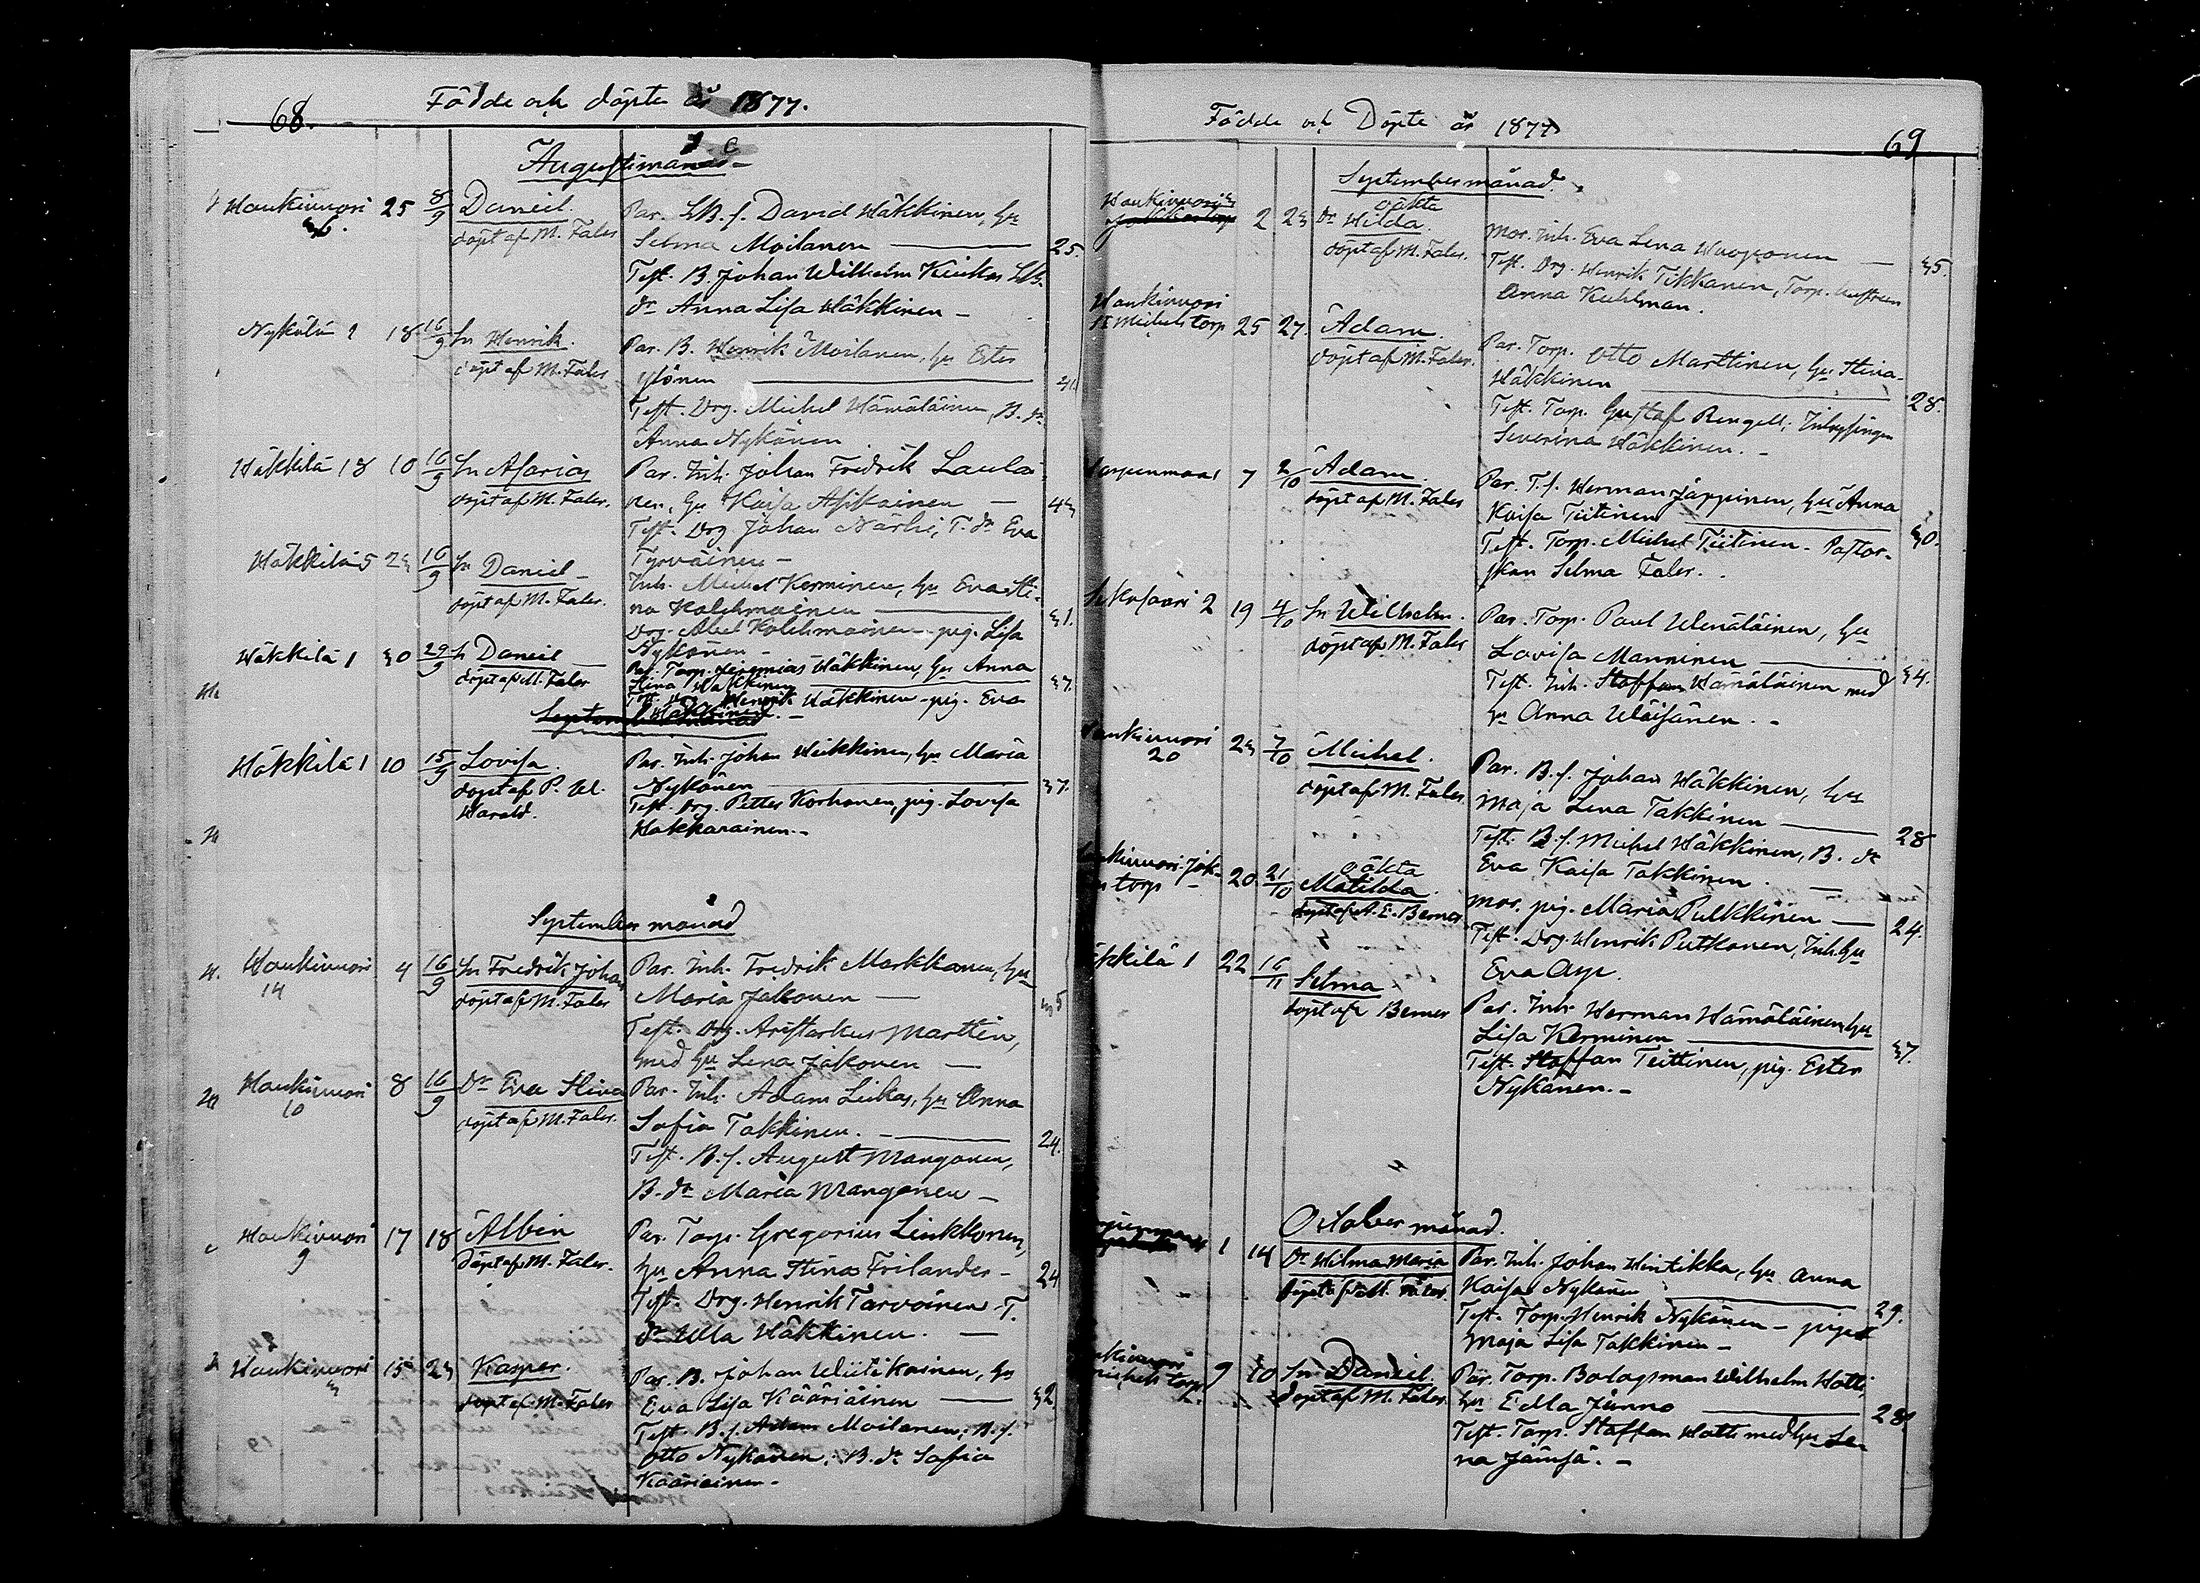 68.
Födde och döpte år 1877.
Augustimånad
Haukivuori 25 8/9 Daniel Par. LB. s. David Häkkinen, hu
6. döpt af M. Faler Selma Moilanen — 25.
Test. B. Johan Wilhelm Kiukas LB.
dr Anna Lisa Häkkinen —
Nykälä 1 18 16/9 Sn Henrik. Par. B. Henrik Moilanen, hu Ester
döpt af M. Faler Ylönen —
Test. Drg. Michel Hämäläinen, B. dr
Anna Nykänen
Häkkilä 18 10 16/9 Sn Asarias Par. Inh. Johan Fredrik Laula-
döpt af M. Faler. nen, hu Kaisa Asikainen — 43
Test. Drg Johan Närhi, T. dr Eva
Tyrväinen —
Häkkilä 5 23 16/9 Sn Daniel — Inh. Michel Kerminen, hu Eva Sti-
döpt af M. Faler. na Kolehmainen — 31.
Drg. Abel Kolehmainen pig. Lisa
Nykänen —
Häkkilä 1 30 29/9 Sn Daniel — Par. Torp. Jeremias Häkkinen, hu Anna
döpt af M. Faler Stina Häkkinen — 37.
Test. Henrik Häkkinen - pig. Eva
Häkkinen. —
September månad
Häkkilä 1 10 15/9 Lovisa. Par. Inh. Johan Heikkinen, hu Maria
döpt af P. W. Nykänen — 37.
Harald. Test. Drg. Petter Korhonen, pig. Lovisa
Hakkarainen. —
September månad
Haukivuori 4 16/9 Sn Fredrik Johan Par. Inh. Fredrik Markkanen, hu
14 döpt af M. Faler Maria Jakonen — 35
Test. Drg. Aristarkus Marttin,
med hu Lena Jakonen —
Haukivuori 8 16/9 Dr Eva Stina Par. Inh. Adam Liukas, hu Anna
10 döpt af M. Faler. Sofia Takkinen. — 24.
Test. B. s. August Manganen,
B. dr Maria Manganen —
Haukivuori 17 18 Albin Par. Torp. Gregorius Linkkonen,
9 döpt af M. Faler. hu Anna Stina Frilander — 24
Test. Drg. Henrik Tarvainen T.
dr Ulla Häkkinen. —
Haukivuori 15 23 Kasper. Par. B. Johan Wiitikainen, hu
3 döpt af M. Faler Eva Lisa Kääriäinen — 32.
Test. B. s. Adam Moilanen; B. s.
Otto Nykänen, B. dr Sofia
Kääriäinen —
Födde och Döpte år 1877
69
September månad.
Haukivuori 2 23 oäkta
Dr Hilda. Mor. Inh. Eva Lena Wuoponen — 35.
döpt af M. Faler. Test. Drg. Henrik Tikkanen, Torp.
Anna Kuhlman.
Haukivuori
St Michels torp 25 27. Adam Par. Torp. Otto Marttinen, hu Stina
döpt af M. Faler. Häkkinen — 28.
Test. Torp. Gustaf Rengell; Inhysingen
Severina Häkkinen. —
7 2/10 Adam Par. T. s. Herman Jäppinen, hu Anna
döpt af M. Faler Kaisa Tiitinen — 30.
Test. Torp. Michel Tiitinen - Pastor-
skan Selma Faler.
2 19 4/10 Sn Wilhelm. Par. Torp. Paul Wenäläinen, hu
döpt af M. Faler Lovisa Manninen — 34.
Test. Inh. Staffan Hämäläinen med
hu Anna Wäisänen. —
Haukivuori 23 7/10 Michel. Par. B. s. Johan Häkkinen, hu
20 döpt af M. Faler. Maja Lena Takkinen — 28
Test. B. s. Michel Häkkinen, B. dr
Eva Kaisa Takkinen. —
Haukivuori Jok- oäkta
torp 20 21/10 Matilda Mor. pig. Maria Pulkkinen — 24.
döpt af A. E. Berner Test. Drg. Henrik Putkonen, Inh. hu
Eva Aye.
Häkkilä 1 22 16/11 Selma Par. Inh. Herman Hämäläinen, hu
döpt af Berner Lisa Kerminen — 37.
Test. Staffan Teittinen, pig. Ester
Nykänen. —
October månad.
1 14 Dr Hilma Maria Par. Inh. Johan Hintikka, hu Anna
döpt af M. Faler. Kaisa Nykänen — 29.
Test. Torp. Henrik Nykänen - pigan
Maja Lisa Takkinen —
Haukivuori
Michels torp 9 10 Sn Daniel. Par. Torp. Bolagsman Wilhelm Hotti,
döpt af M. Faler. hu Edla Junno — 28
Test. Torp. Staffan Hotti med hu Le-
na Jämsä. —